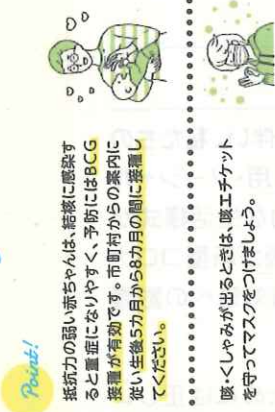 Point!
抵抗力の弱い赤ちゃんは、結核に感染す
ると重症になりやすく、予防にはBCG
接種が有効です。市町村からの案内に
従い生後5カ月から8カ月の間に接種し
てください。
咳・くしゃみが出るときは、咳エチケット
を守ってマスクをつけましょう。